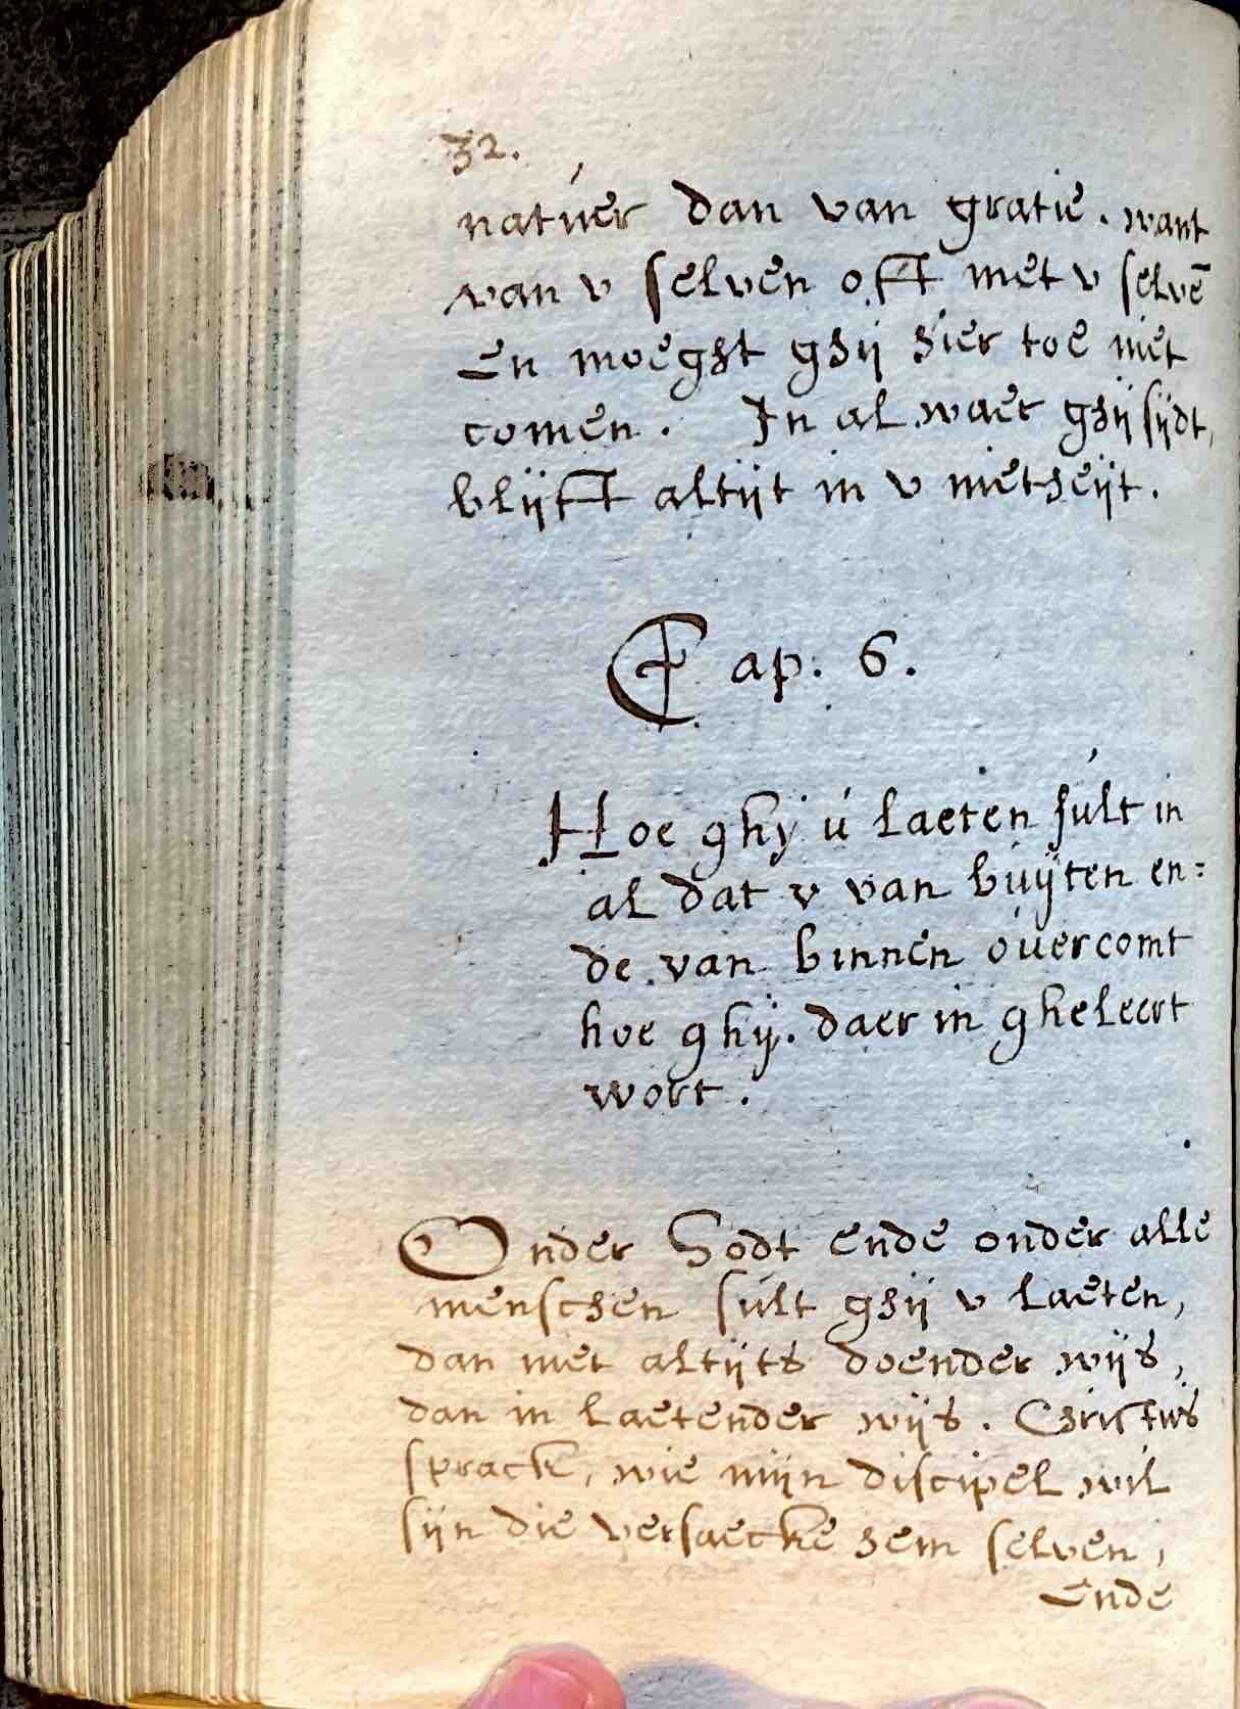 32.
natúer dan van gratie. want
van v selven oft met v selvē
En moeght ghij hier toe niet
comen. In al waer ghij sijdt,
blijft altijt in v nietheijt.
Cap. 6.
Hoe ghÿ ú laeten súlt in
al dat v van búÿten en=
de van binnen óuercomt
hoe ghÿ. daer in gheleert
wort.
Onder Godt ende onder alle
menschen súlt ghij v laeten,
dan niet altijts doender wijs,
dan in laetender wijs. Christus
sprack, wie mijn discipel wil
sijn die versaecke hem selven,
Ende